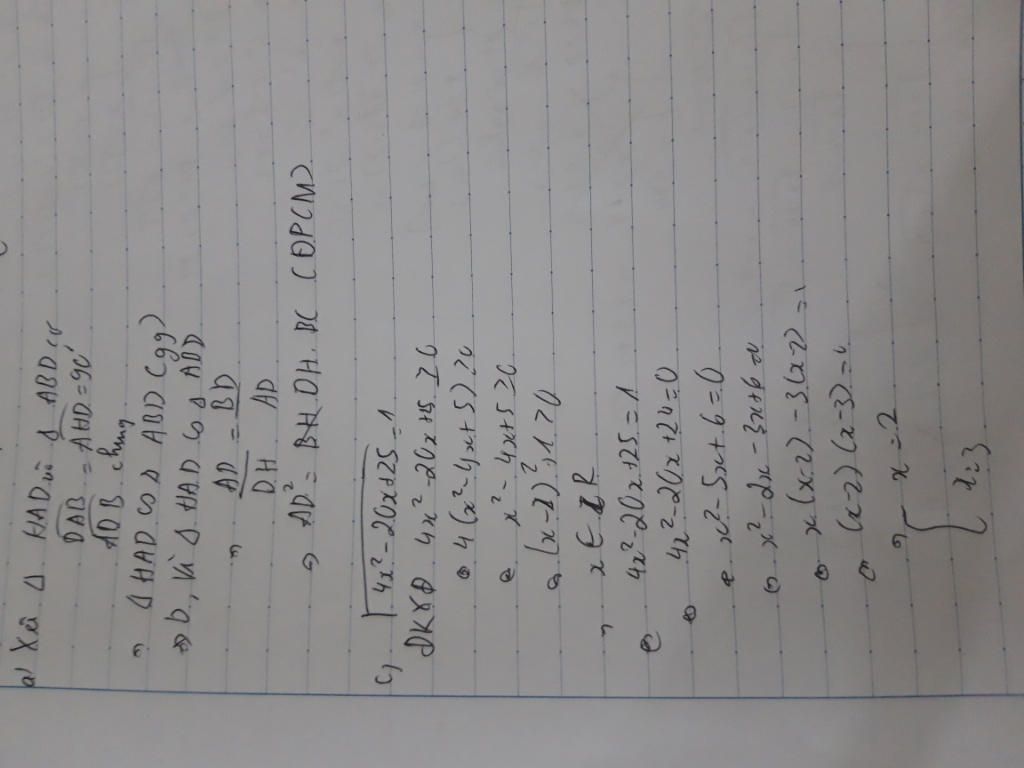 a) Xét Δ HAD và Δ ABD có
DAB = AHD = 90°
ADB chung
⇒ Δ HAD ∽ Δ ABD (gg)
⇒ b, Vì Δ HAD ∽ Δ ABD
⇒ AD/DH = BD/AD
⇒ AD² = DH. BC (ĐPCM)
c, √4x²-20x+25 = 1
ĐKXĐ 4x²-20x+25 ≥ 0
⇔ 4(x²-4x+5) ≥ 0
⇔ x²-4x+5 ≥ 0
⇔ (x-2)²+1 ≥ 0
⇒ x ∈ R
⇔ 4x²-20x+25=1
⇔ 4x²-20x+24=0
⇔ x²-5x+6=0
⇔ x²-2x-3x+6=0
⇔ x(x-2)-3(x-2)=0
⇔ (x-2)(x-3)=0
⇒ { x=2
x=3